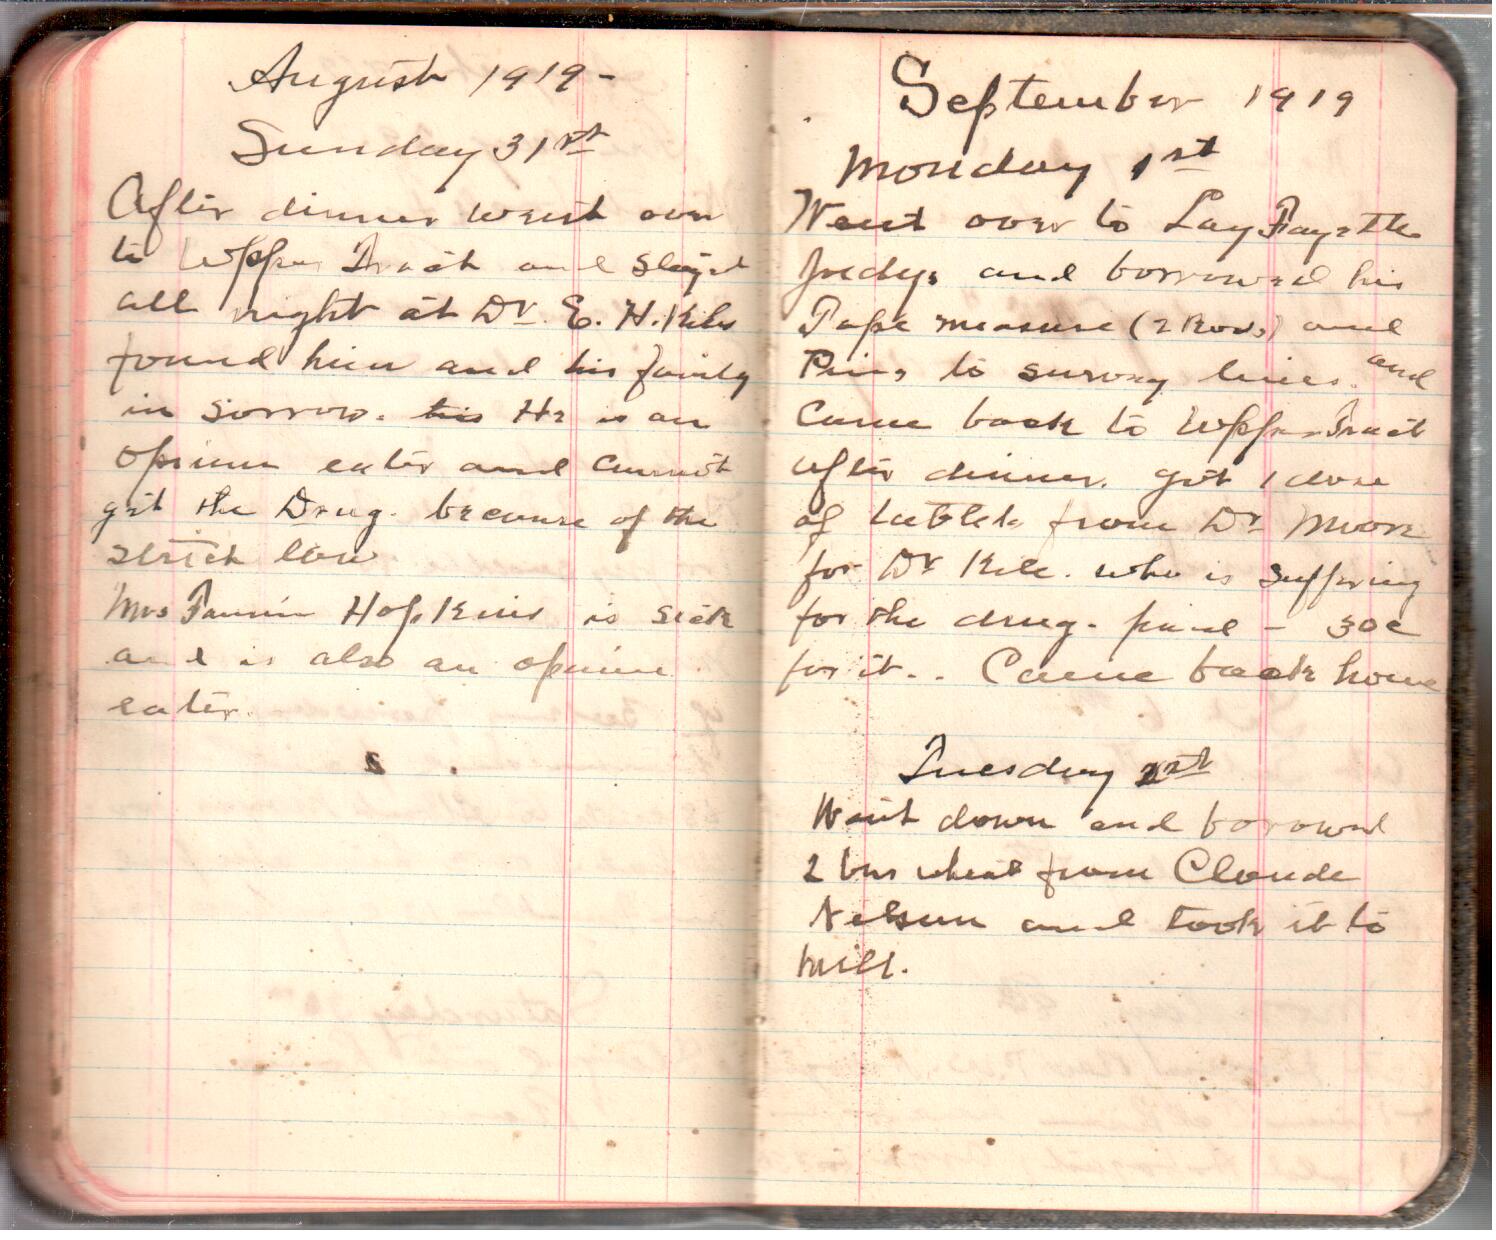 August 1919-
Sunday 31st
After dinner went over
to Upper Tract and stayed
all night at Dr. E. H. Kile
found him and his family
in sorrow. his He is an
opium eater and cannot
get the Drug. because of the
strict law
Mrs Fannie Hopkins is sick
and is also an opium
eater.
S .
September 1919
Monday 1st
Went over to LayFayette
Judys and borrowed his
Tape measure (2 Rods) and
Pins to survey lines. and
Came back to Upper Tract
after dinner. got 1 dose
of tablets from Dr Moore
for Dr Kile. who is suffering
for the drug. paid - 30c
for it.. Came back home
Tuesday 2st
Went down and borowed
2 bus wheat from Cloude
Nelson and took it to
mill.